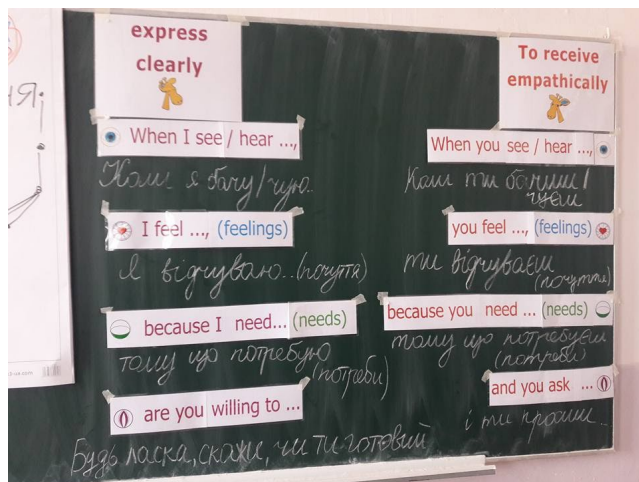 express
clearly
When I see / hear ...,
Коли я бачу/чую..
I feel ..., (feelings)
Я відчуваю..(почуття)
because I need... (needs)
тому що потребую
(потреби)
are you willing to ...
Будь ласка, скажи, чи ти готовий
To receive
empathically
When you see / hear ...,
Коли ти бачиш/
чуєш
you feel ..., (feelings)
ти відчуваєш
(почуття)
because you need ... (needs)
тому що потребуєш
(потреби)
and you ask ...
і ти просиш..